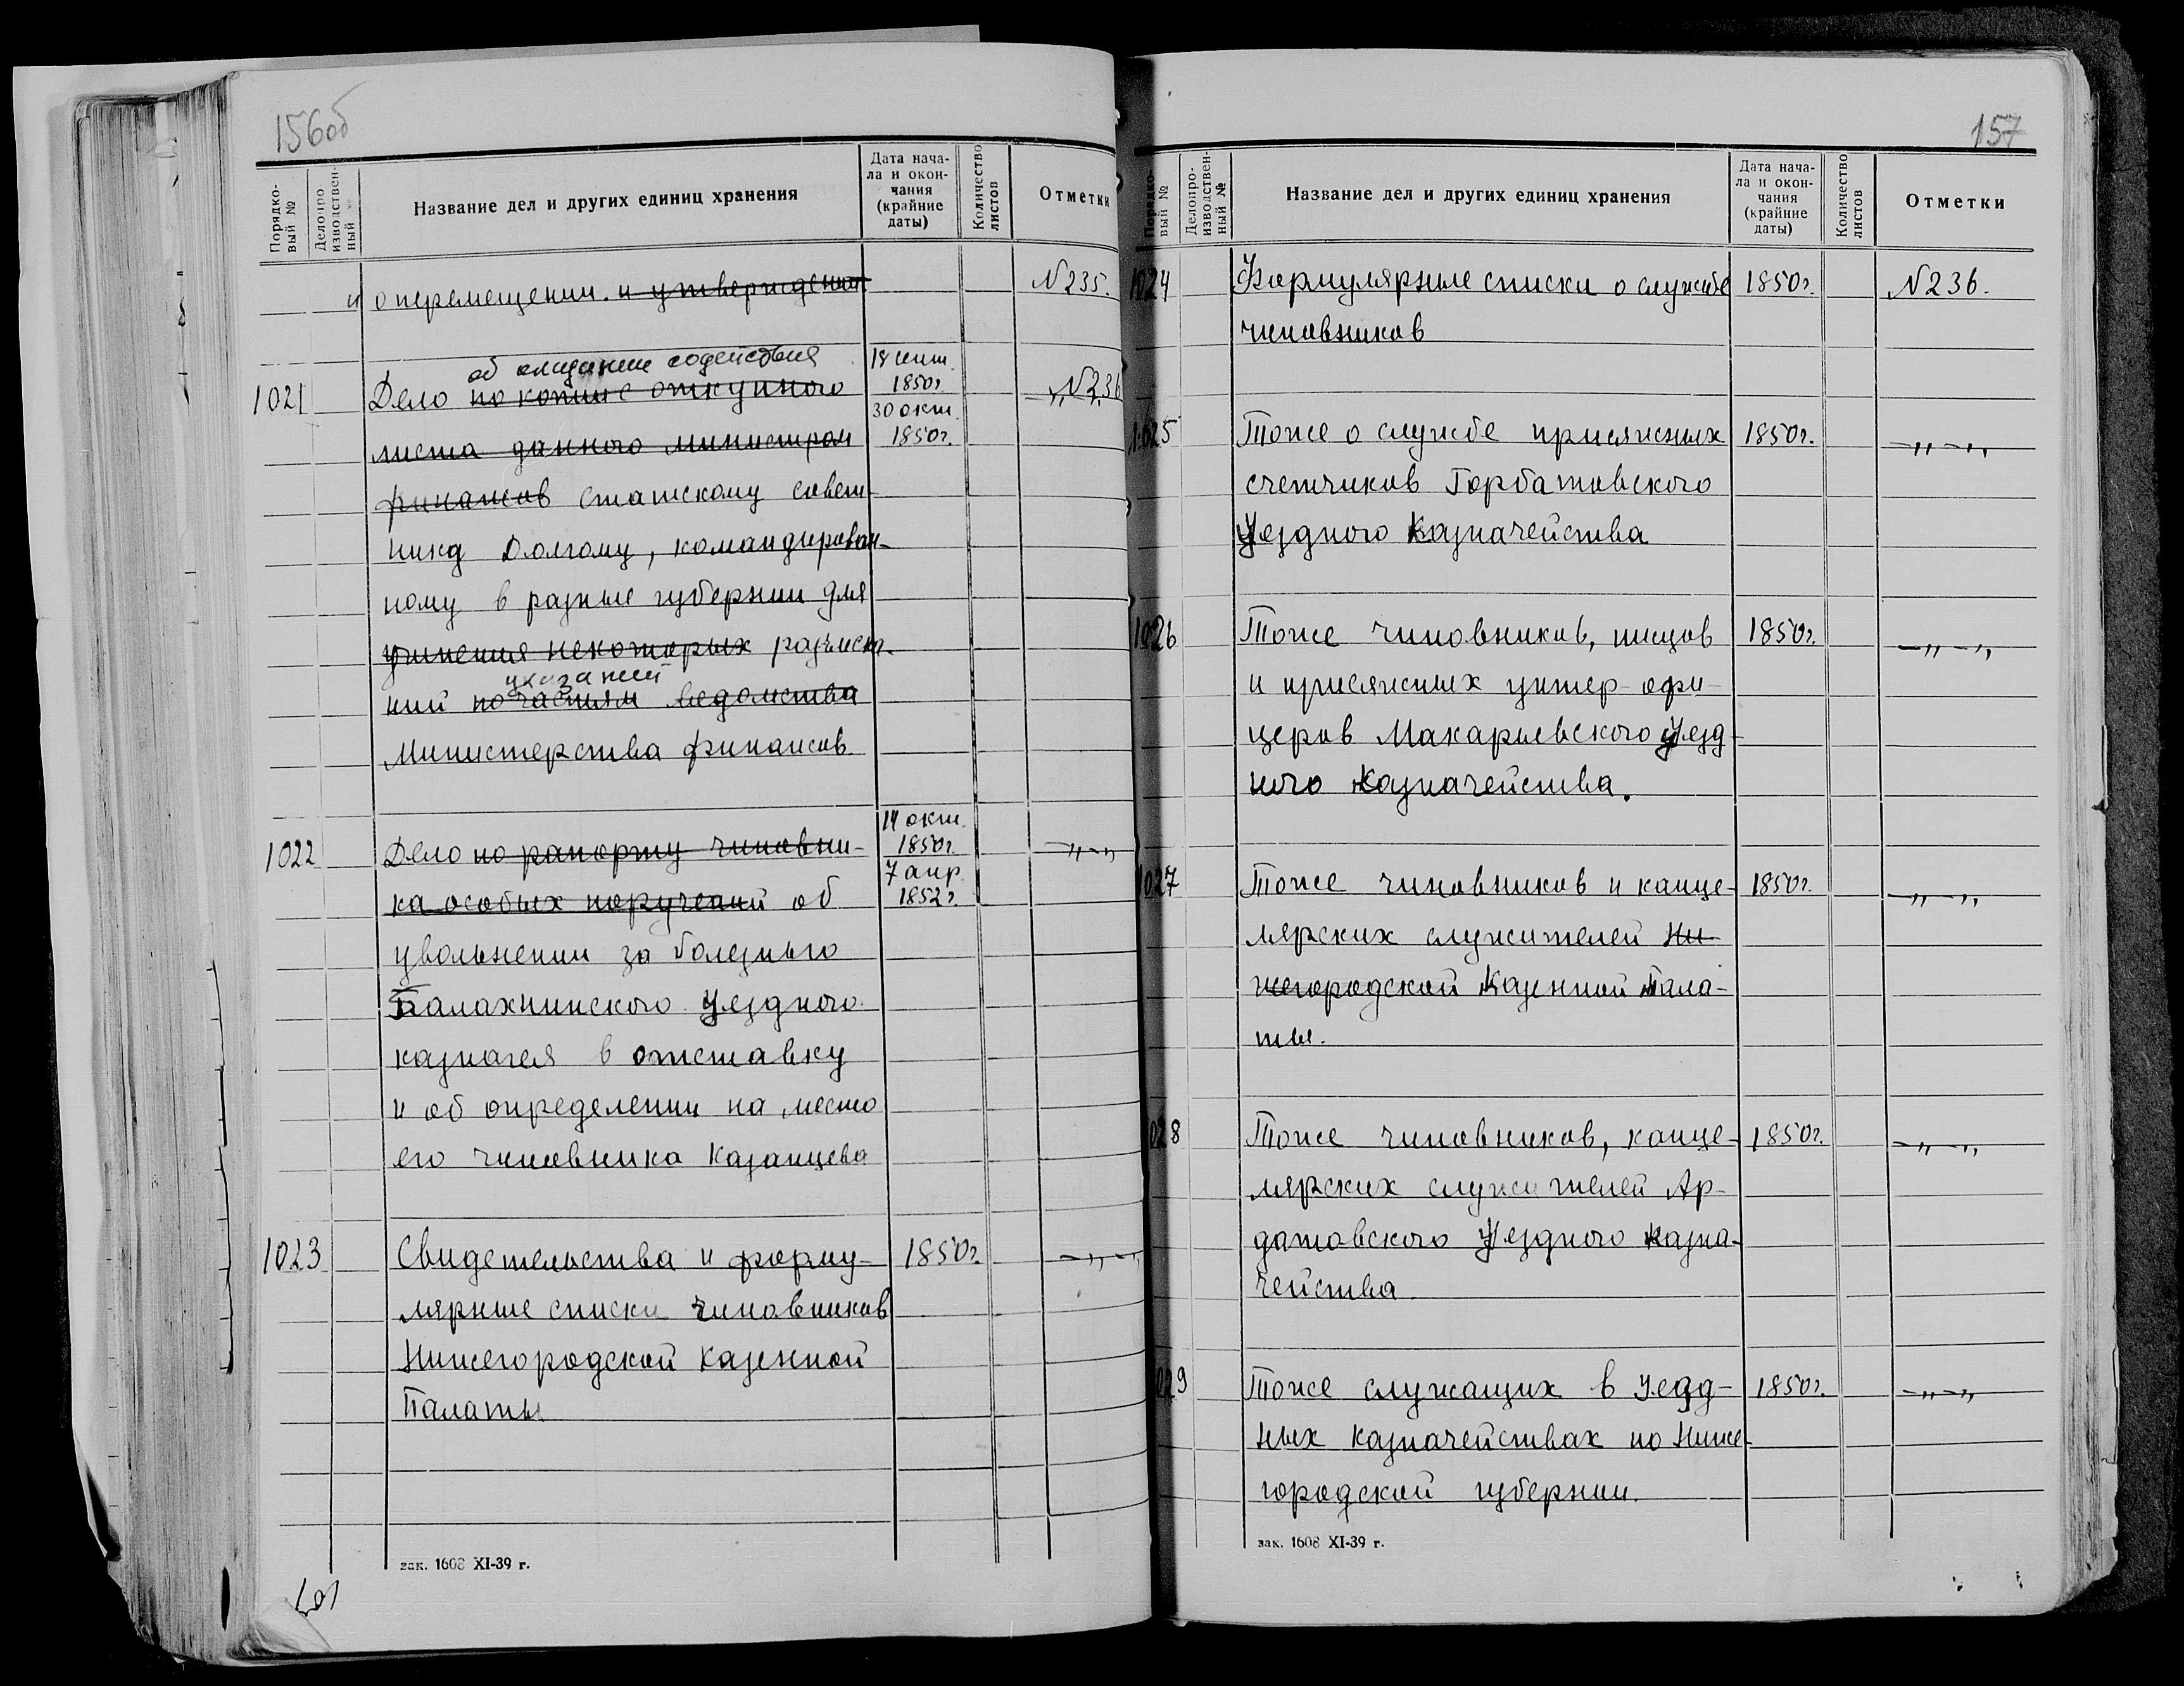 156об
Порядко-
вый №
Делопро
изводствен-
ный
Название дел и других единиц хранения
Дата нача-
ла и окон-
чания
(крайние
даты)
Количество
листов
Отметки
и о перемещении. и утверждении N 235.
об оказании содействия
1021 Дело по копии с откупного 18 сент. 1850г. 30 окт. 1850г. N 236 -„-„
листа данного министром
финансов статскому совет-
нику Долгому, командирован-
ному в разные губернии для
учинения некоторых разыска-
указаний
ний по частям ведомства
Министерства финансов
1022 Дело по рапорту чиновни- 14 окт. 1850г. 7 апр. 1852г. -„-„
ка особых поручений об
увольнении за болезнью
Балахнинского Уездного
казначея в отставку
и об определении на место
его чиновника Казанцева
1023 Свидетельства и форму- 1850г. -„-„
лярные списки чиновников
Нижегородской Казенной
Палаты
зак. 1608 XI-39 г.
157
Порядко-
вый №
Делопро-
изводствен-
ный №
Название дел и других единиц хранения
Дата нача-
ла и окон-
чания
(крайние
даты)
Количество
листов
Отметки
1024 Формулярные списки о службе 1850г. N 236.
чиновников
1025 Тоже о службе присяжных 1850г. -„-„
счетчиков Горбатовского
Уездного Казначейства
1026 Тоже чиновников, писцов 1850г. -„-„
и присяжных унтер-офи-
церов Макарьевского Уезд-
ного Казначейства.
1027 Тоже чиновников и канце- 1850г. -„-„
лярских служителей Ни-
жегородской Казенной Пала-
ты.
028 Тоже чиновников, канце- 1850г. -„-„
лярских служителей Ар-
датовского Уездного Казна-
чейства
029 Тоже служащих в Уезд- 1850г. -„-„
ных казначействах по Ниже-
городской губернии.
зак. 1608 XI-39 г.